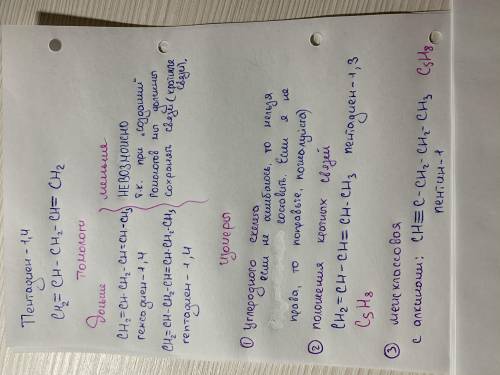 Пентадиен-1,4
CH₂=CH-CH₂-CH=CH₂
гомологи
больше
CH₂=CH-CH₂-CH=CH-CH₃
гексадиен-1,4
CH₂=CH-CH₂-CH=CH-CH₂-CH₃
гептадиен-1,4
меньше
НЕВОЗМОЖНО
т.к. при "создании"
гомологов мы должны
сохранять связи (кратные
связи).
Изомеры
① углеродного скелета
если не ошибаюсь, то нельзя
составить. Если я не
права, то поправьте, пожалуйста)
② положения кратных связей
CH₂=CH-CH=CH-CH₃ пентадиен-1,3
C₅H₈
③ межклассовая
с алкинами: CH≡C-CH₂-CH₂-CH₃ C₅H₈
пентин-1